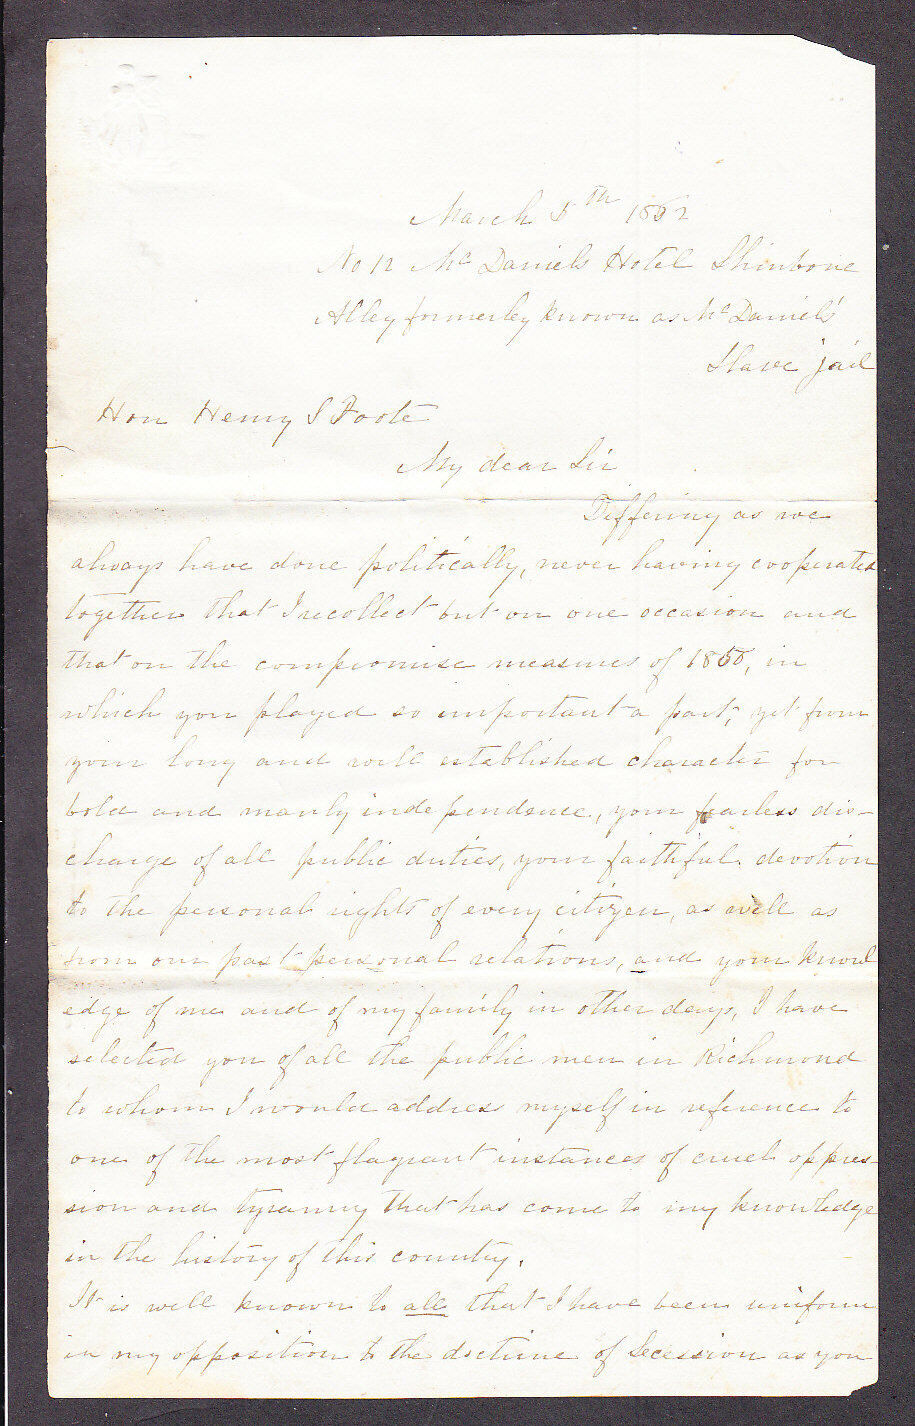 March 5th 1862
No 12 Mc Daniels Hotel Shinbone
Alley formerley known as Mc Daniels'
Slave jail
Hon Henry S Foote
My dear Sir
Differing as we
always have done politically, never having cooperated
together that I recollect but on one occasion and
that on the compromise measures of 1850, in
which you played so important a part, yet from
your long and well established character for
bold and manly independence, your fearless dis-
charge of all public duties, your faithful devotion
to the personal rights of every citizen, as well as
from our past personal relations, and your knowl
edge of me and of my family in other days, I have
selected you of all the public men in Richmond
to whom I would address myself in reference to
one of the most flagrant instances of cruel oppres-
sion and tyranny that has come to my knowledge
in the history of this country.
It is well known to all that I have been uniform
in my opposition to the doctrine of Secession as you